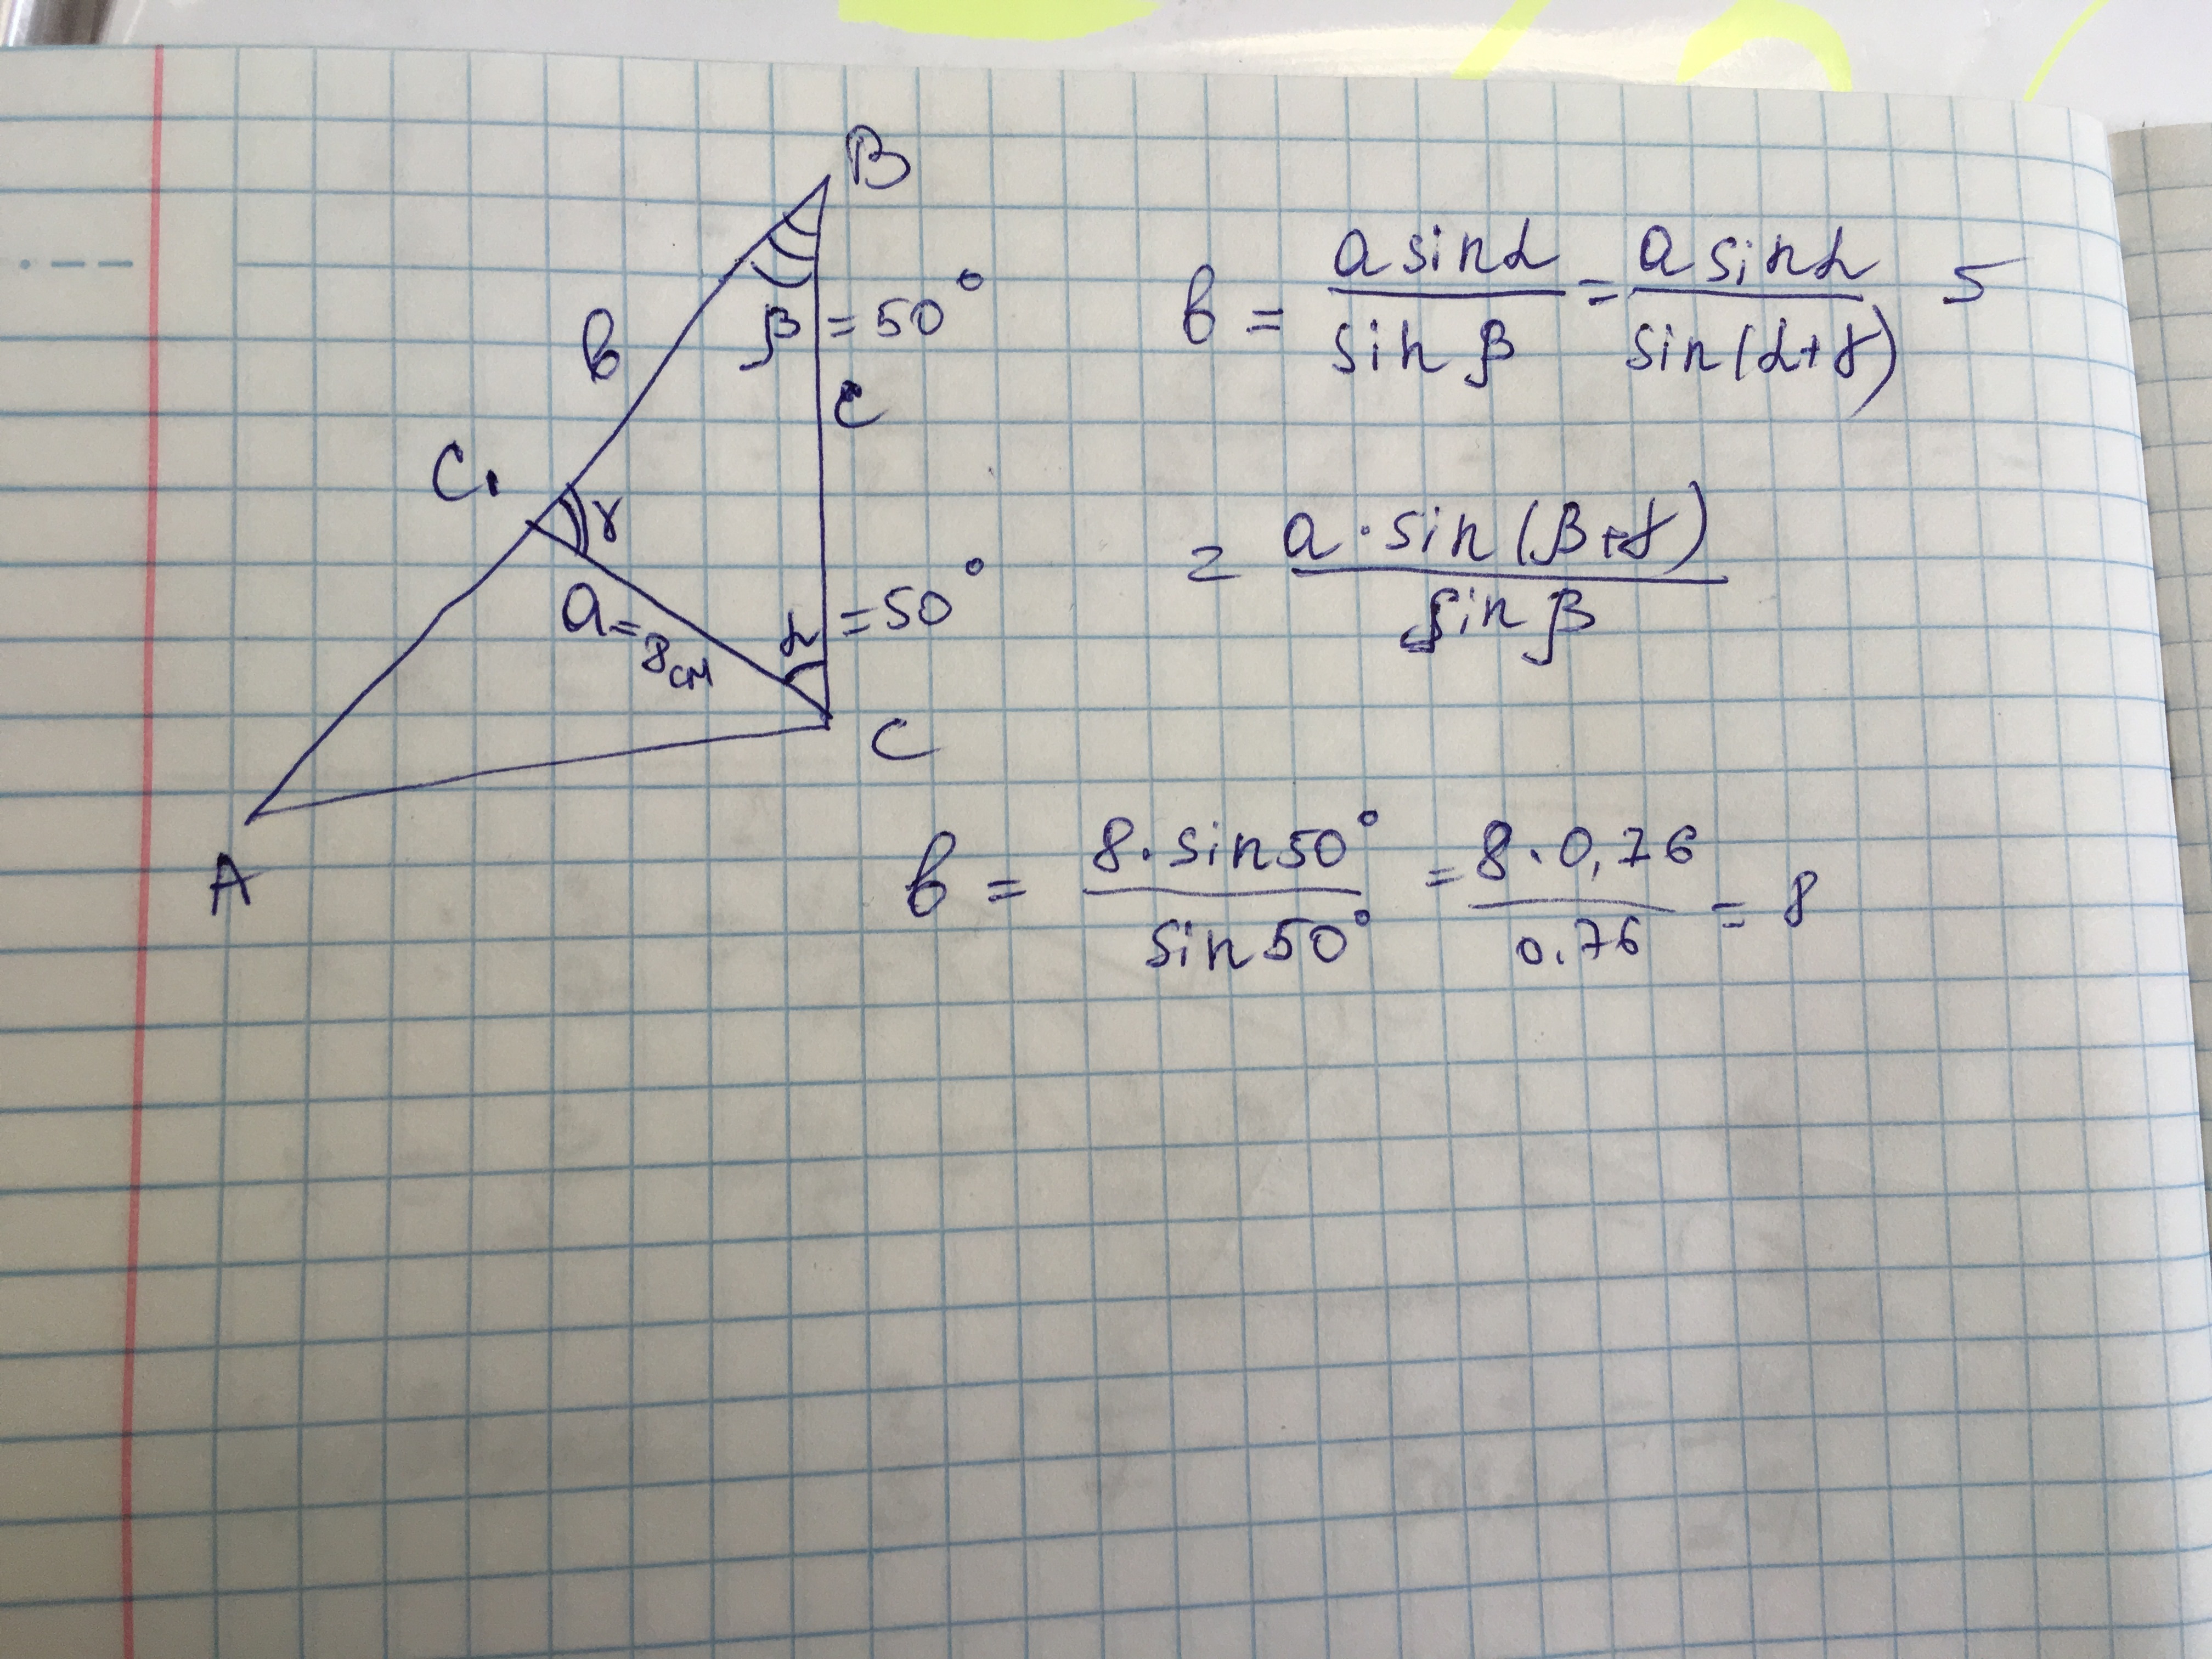 B
β = 50°
в
c
C₁
γ
a = 8 см
α = 50°
C
A
в = a sin α / sin β = a sin α / sin(α+γ) =
= a · sin (β+γ) / sin β
в = 8 · sin 50° / sin 50° = 8 · 0,76 / 0.76 = 8